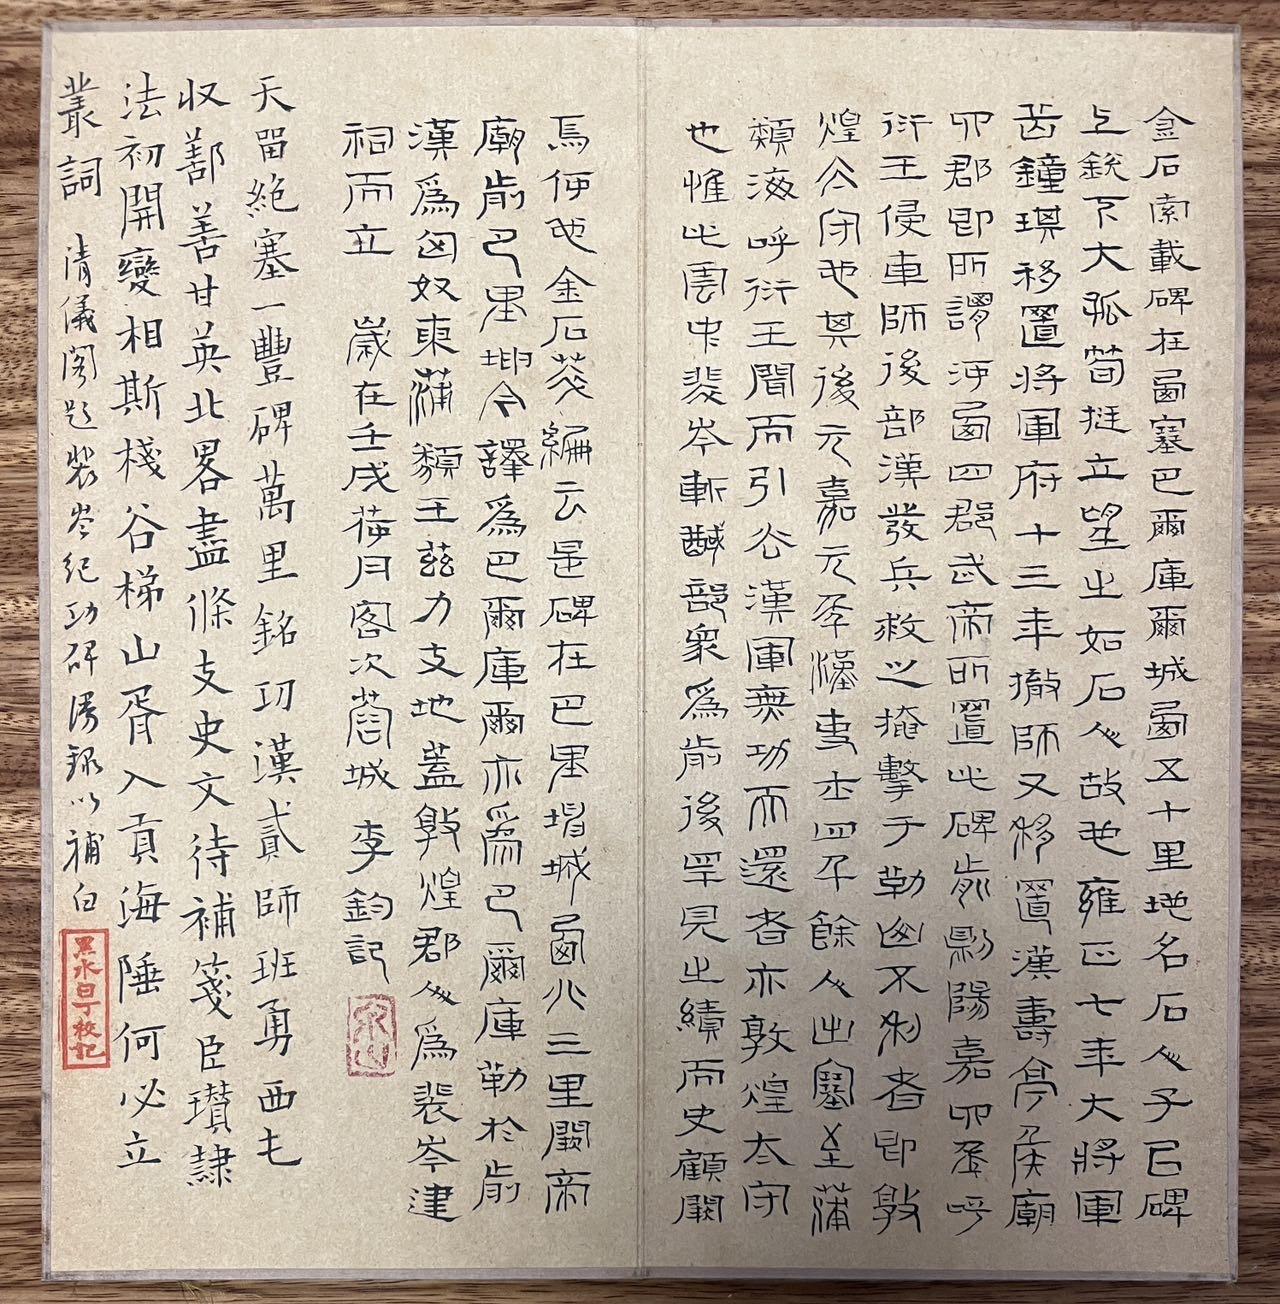 金石索載碑在西塞巴爾庫爾城西五十里地名石人子以碑
上銳下大孤筍挺立望之如石人故也雍正七年大將軍
岳鐘琪移置將軍府十三年撤師又移置漢壽亭侯廟
郡即所謂河西四郡武帝所置此碑前陽嘉四年呼
衍王侵車師後部漢發兵救之掩擊于勒山不利者即敦
煌太守也其後元嘉元年漢吏士四千餘人出塞至蒲
類海呼衍王聞而引去漢軍無功而還者亦敦煌太守
也惟此雲中裴岑斬馘部眾為前後罕見之績而史顧闕
焉何也金石萃編云是碑在巴里坤城西北三里關帝
廟前巴里坤今譯爲巴爾庫爾亦爲巴爾庫勒於前
漢爲匈奴東蒲類王茲力支地蓋敦煌郡人爲裴岑建
祠而立 歲在壬戌荷月客次蓉城 李鈞記
天留絕塞一豐碑萬里銘功漢貳師班勇西屯
收鄯善甘英北畧盡條支史文待補箋臣瓚隸
法初開變相斯棧谷梯山胥入貢海陲何必立
叢詞 清儀閣題裴岑紀功碑詩錄以補白